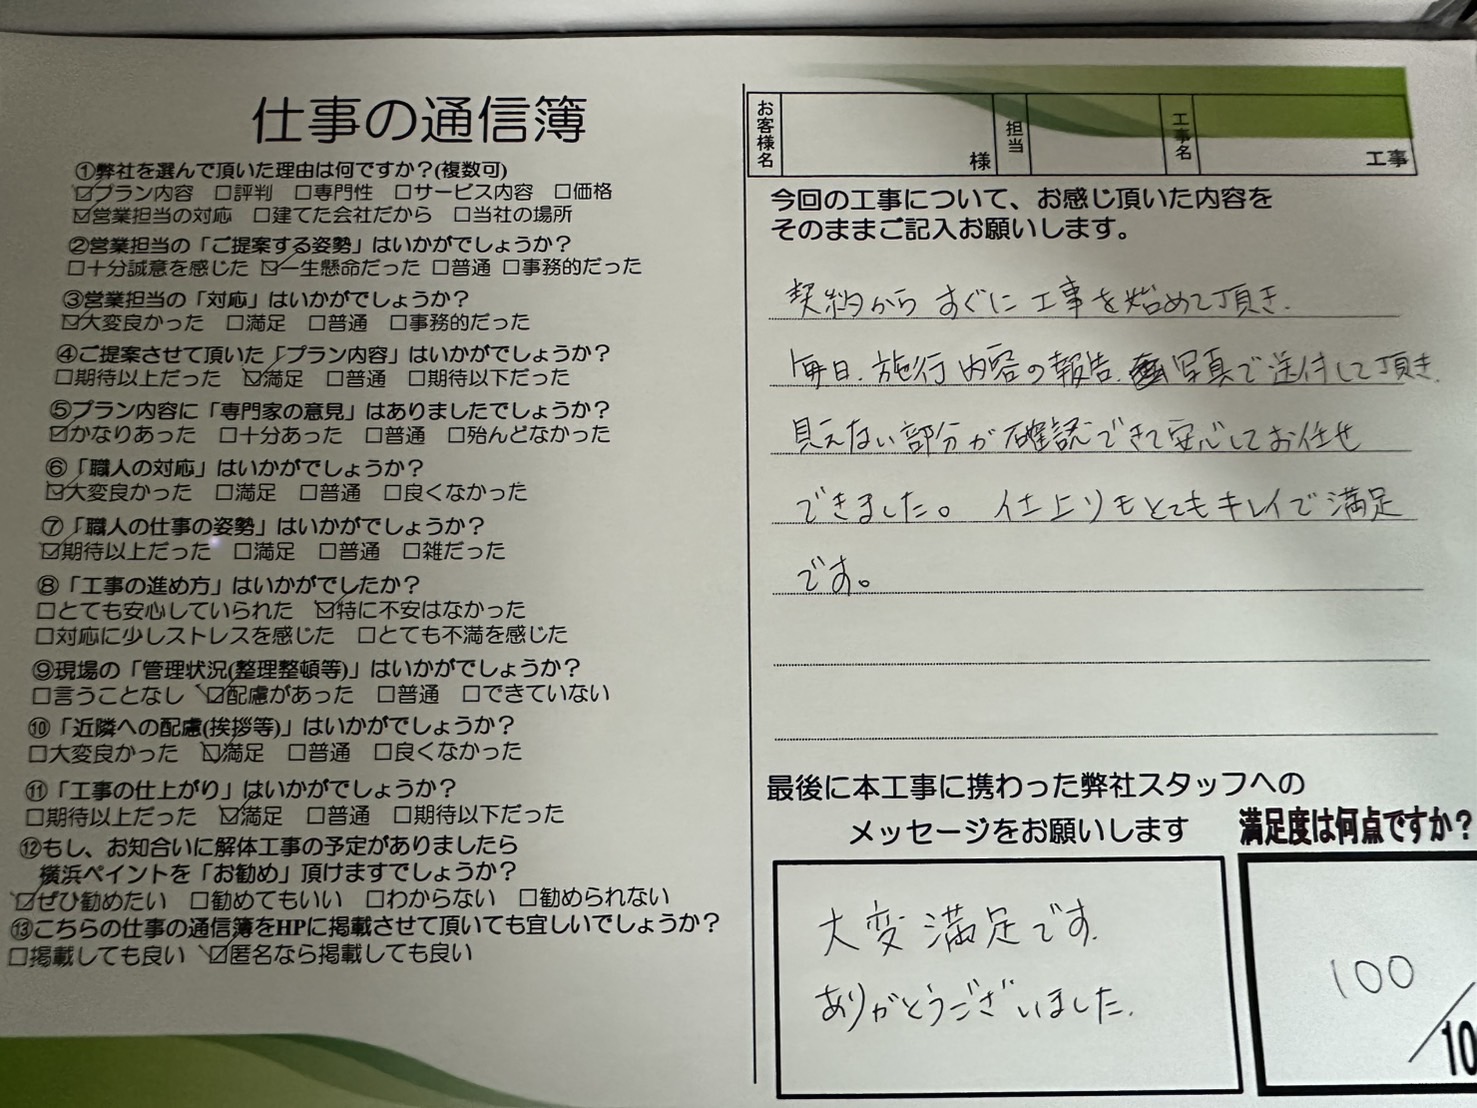 仕事の通信簿
①弊社を選んで頂いた理由は何ですか?(複数可)
☑プラン内容 □評判 □専門性 □サービス内容 □価格
☑営業担当の対応 □建てた会社だから □当社の場所
②営業担当の「ご提案する姿勢」はいかがでしょうか?
□十分誠意を感じた ☑一生懸命だった □普通 □事務的だった
③営業担当の「対応」はいかがでしょうか?
☑大変良かった □満足 □普通 □事務的だった
④ご提案させて頂いた「プラン内容」はいかがでしょうか?
□期待以上だった ☑満足 □普通 □期待以下だった
⑤プラン内容に「専門家の意見」はありましたでしょうか?
☑かなりあった □十分あった □普通 □殆んどなかった
⑥「職人の対応」はいかがでしょうか?
☑大変良かった □満足 □普通 □良くなかった
⑦「職人の仕事の姿勢」はいかがでしょうか?
☑期待以上だった □満足 □普通 □雑だった
⑧「工事の進め方」はいかがでしたか?
□とても安心していられた ☑特に不安はなかった
□対応に少しストレスを感じた □とても不満を感じた
⑨現場の「管理状況(整理整頓等)」はいかがでしょうか?
□言うことなし ☑配慮があった □普通 □できていない
⑩「近隣への配慮(挨拶等)」はいかがでしょうか?
□大変良かった ☑満足 □普通 □良くなかった
⑪「工事の仕上がり」はいかがでしょうか?
□期待以上だった ☑満足 □普通 □期待以下だった
⑫もし、お知合いに解体工事の予定がありましたら
横浜ペイントを「お勧め」頂けますでしょうか?
☑ぜひ勧めたい □勧めてもいい □わからない □勧められない
⑬こちらの仕事の通信簿をHPに掲載させて頂いても宜しいでしょうか?
□掲載しても良い ☑匿名なら掲載しても良い
お客様名 様 担当 工事名 工事
今回の工事について、お感じ頂いた内容を
そのままご記入お願いします。
契約からすぐに工事を始めて頂き.
毎日.施行内容の報告.写真で送付して頂き.
見えない部分が確認できて安心してお任せ
できました。仕上りもとてもキレイで満足
です。
最後に本工事に携わった弊社スタッフへの
メッセージをお願いします
大変満足です.
ありがとうございました.
満足度は何点ですか?
100
/10